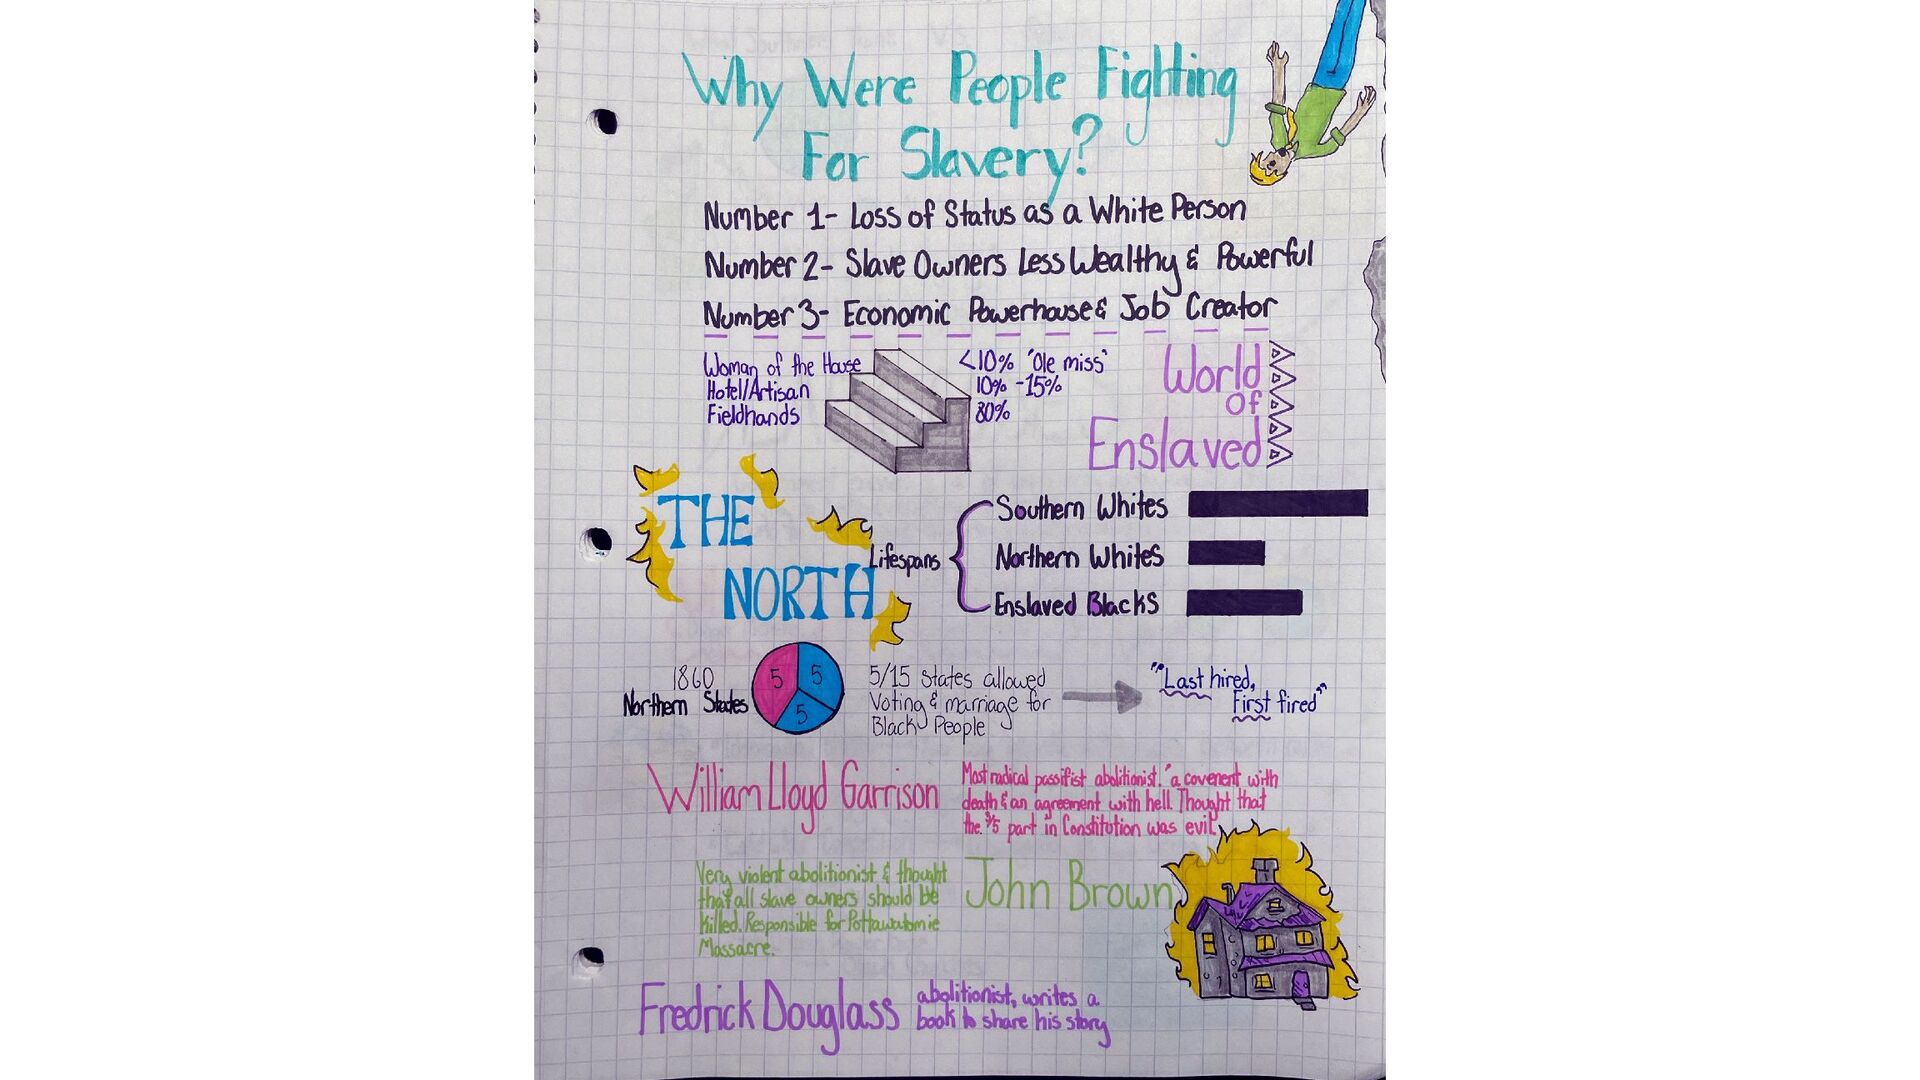 Why Were People Fighting
For Slavery?
Number 1- Loss of Status as a White Person
Number 2- Slave Owners Less Wealthy & Powerful
Number 3- Economic Powerhouse & Job Creator
Woman of the House
Hotel/Artisan
Fieldhands
<10% "Ole miss"
10% -15%
80%
World
Of
Enslaved
THE
NORTH
Lifespans
Southern Whites
Northern Whites
Enslaved Blacks
1860
Northern States
5 5
5
5/15 States allowed
Voting & marriage for
Black People
"Last hired,
First fired"
William Lloyd Garrison
Most radical passifist abolitionist. "a covenent with
death & an agreement with hell. Thought that
the 3/5 part in Constitution was evil.
Very violent abolitionist & thought
that all slave owners should be
killed. Responsible for Pottawatomie
Massacre.
John Brown
Fredrick Douglass
abolitionist, writes a
book to share his story